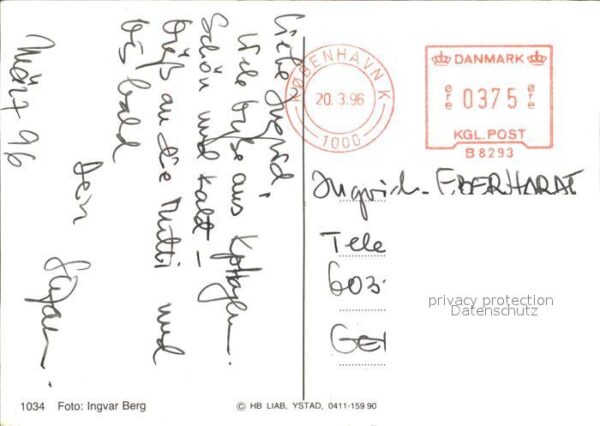 Liebe Ingrid,
Viele Grüße aus Kphagen.
Schön und kalt –
Grüß an die Mutti und
bis bald
Dein
März 96
KØBENHAVN K
20. 3.96
1000
DANMARK
øre 0375 øre
KGL. POST
B 8293
Ingrid EBERHARDT
Tele
603
GE
privacy protection
Datenschutz
1034 Foto: Ingvar Berg
© HB LIAB, YSTAD, 0411-159 90